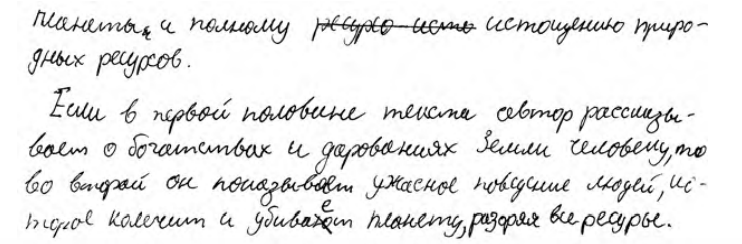 планеты, и полному ~~ресурсо исто~~ истощению приро-
дных ресурсов.
Если в первой половине текста автор рассказы-
вает о богатствах и дарованиях Земли человеку, то
во второй он показывает ужасное поведение людей, ко-
торое калечит и убивает планету, разоряя все ресурсы.